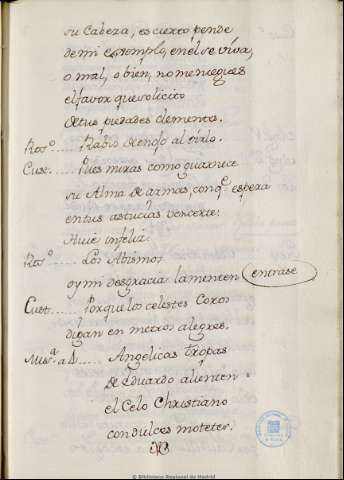 su Cabeza, es cierto pende
de mi exemplo, en el se viva,
o mal, o bien, no me niegues
el favor que solicito
de tus piedades clementes.
Rabio de enojo al oirlo.
Cust. .... Pues miras como guarnece
su Alma de armas, con q.e espera
en tus astucias vencerte.
Huie infeliz.
Los Abismos
oy mi desgracia lamenten entrase
Cust. .... Porque los celestes Coros
digan en metros alegres.
Mus.a a 4. .... Angelicas tropas
de Eduardo alienten
el Celo Christiano
con dulces motetes.
© Biblioteca Regional de Madrid